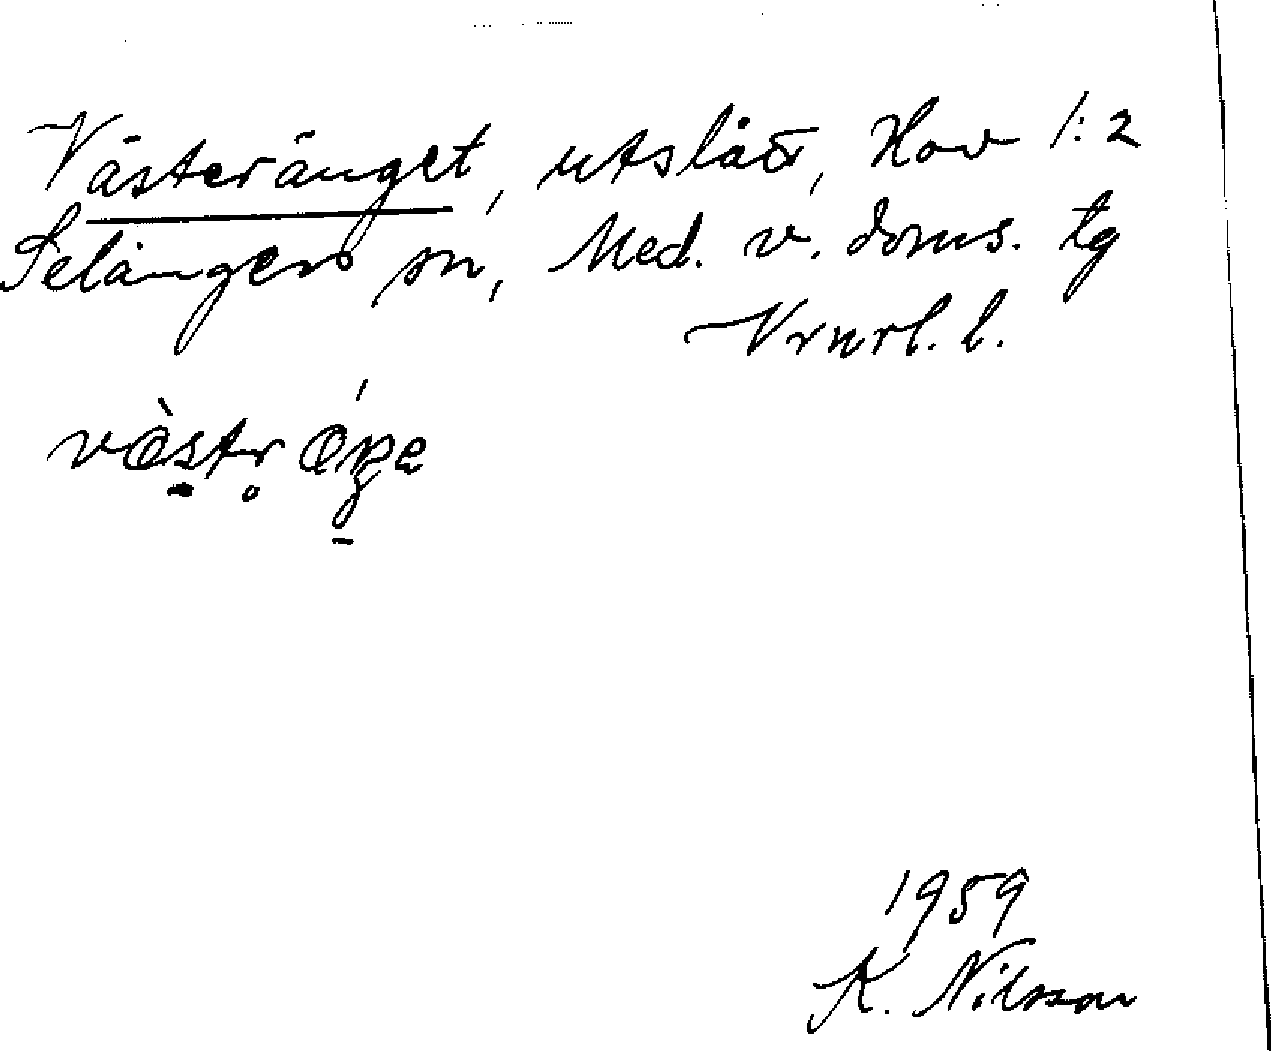 Västeränget, utslått, Hov 1:2
Selångers sn, Med. v. doms. tg
Vrnrl. l.
1959
K. Nilsson